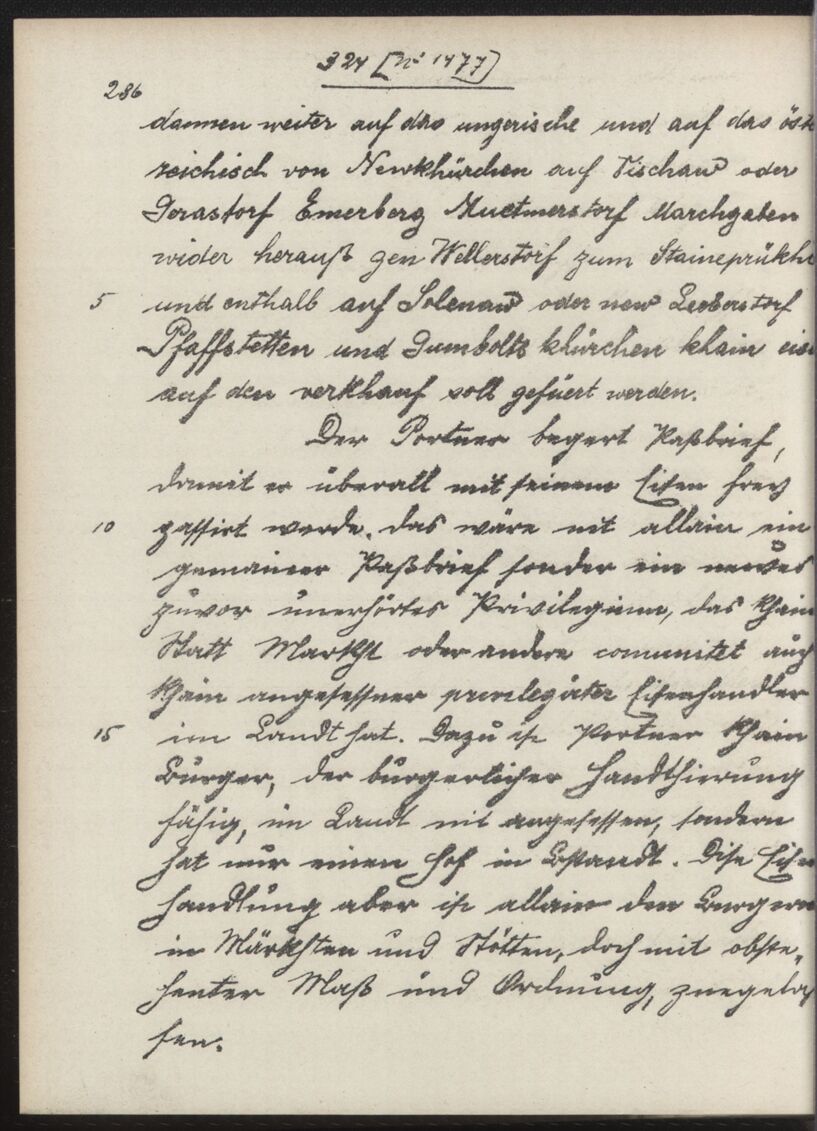 324 [No 1477]
286
dannen weiter auf das ungerische und auf das öst
reichisch von Newkhürchen auf Vischaw oder
Gerastorf Emerberg Muetmerstorf Marchgaben
wider herauß gen Wellerstorf zum Staineprükhe
5 und enthalb auf Solenaw oder new Lesberstorf
Pfaffstetten und Gumbolts khürchen khain eis
auf den verkhauf soll gefüert werden.
Der Portner begert Paßbrief,
damit er überall mit seinem Eisen frey
10 passirt werde. das wäre nit allain ein
gemainer Paßbrief sonder ein newes
zuvor unerhörtes Privilegium, das khain
Statt Markht oder andere comunitet auch
khain angesessner privilegirter Eisenhandler
15 im Landt hat. Dazu ist Portner khain
Burger, der burgerlicher Handthierung
fähig, im Landt nit angesessen, sondern
hat nur einen Hof in Bstandt. Dise Eisn
handlung aber ist allain den Burgern
in Märkhten und Stötten, doch mit obste„
henter Maß und Ordnung, zuegelas
sen.